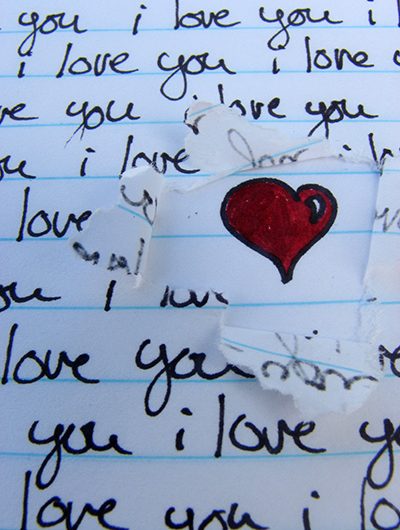 you i love you i
i love you i love
you i love you
i love i
love
i
love you
you i love
love you i